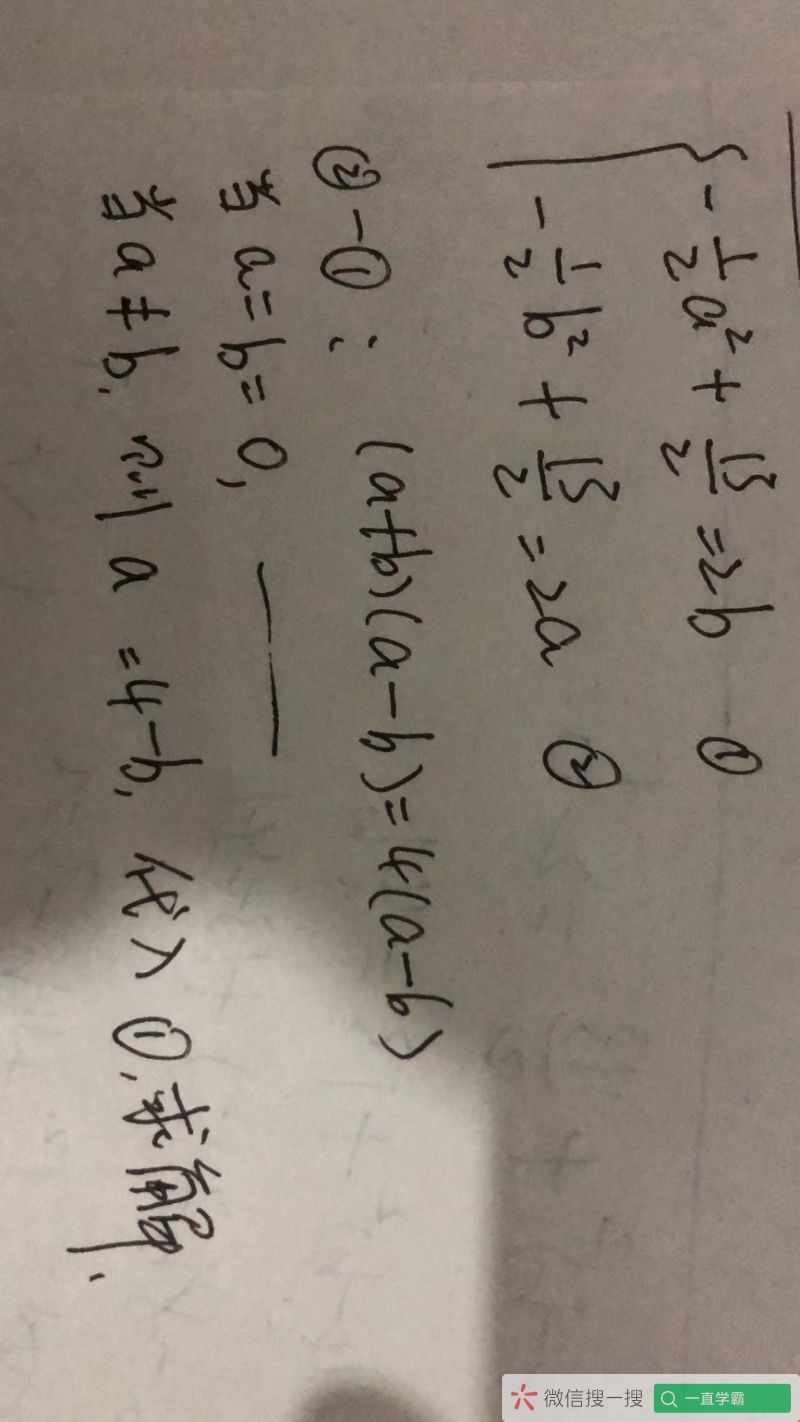 -1/2 a² + 13/2 = 2b ①
-1/2 b² + 13/2 = 2a ②
②-①: (a+b)(a-b)=4(a-b)
当a=b=0,
当a≠b, 则a=4-b, 代入①,求解.
微信搜一搜 一直学霸